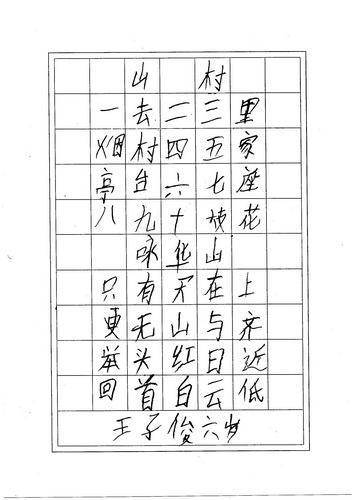 山村
一去二三里
烟村四五家
亭台六七座
八九十枝花
咏华山
只有天在上
更无山与齐
举头红日近
回首白云低
王子俊六岁